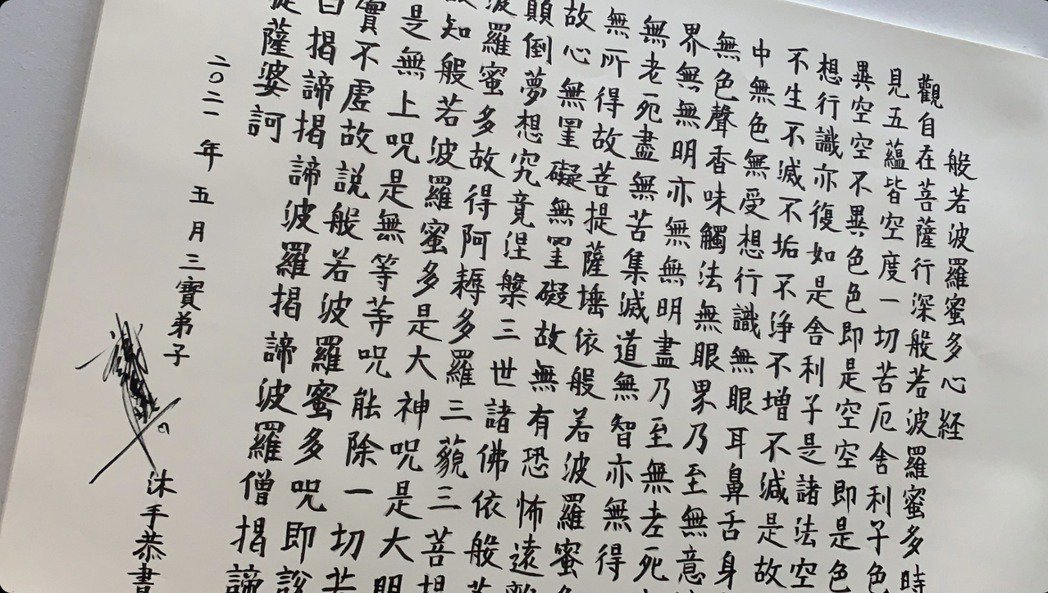 般若波羅蜜多心経
觀自在菩薩行深般若波羅蜜多時
見五蘊皆空度一切苦厄舍利子色
異空空不異色色即是空空即是色
想行識亦復如是舍利子是諸法空
不生不滅不垢不浄不增不減是故
中無色無受想行識無眼耳鼻舌身
無色聲香味觸法無眼界乃至無意
界無無明亦無無明盡乃至無老死
無老死盡無苦集滅道無智亦無得
無所得故菩提薩埵依般若波羅蜜
故心無罣礙無罣礙故無有恐怖遠
顛倒夢想究竟涅槃三世諸佛依般
波羅蜜多故得阿耨多羅三藐三菩提
知般若波羅蜜多是大神咒是大明
是無上咒是無等等咒能除一切苦
實不虛故說般若波羅蜜多咒即說
曰揭諦揭諦波羅揭諦波羅僧揭諦
提薩婆訶
二〇二一年五月三寶弟子
沐手恭書